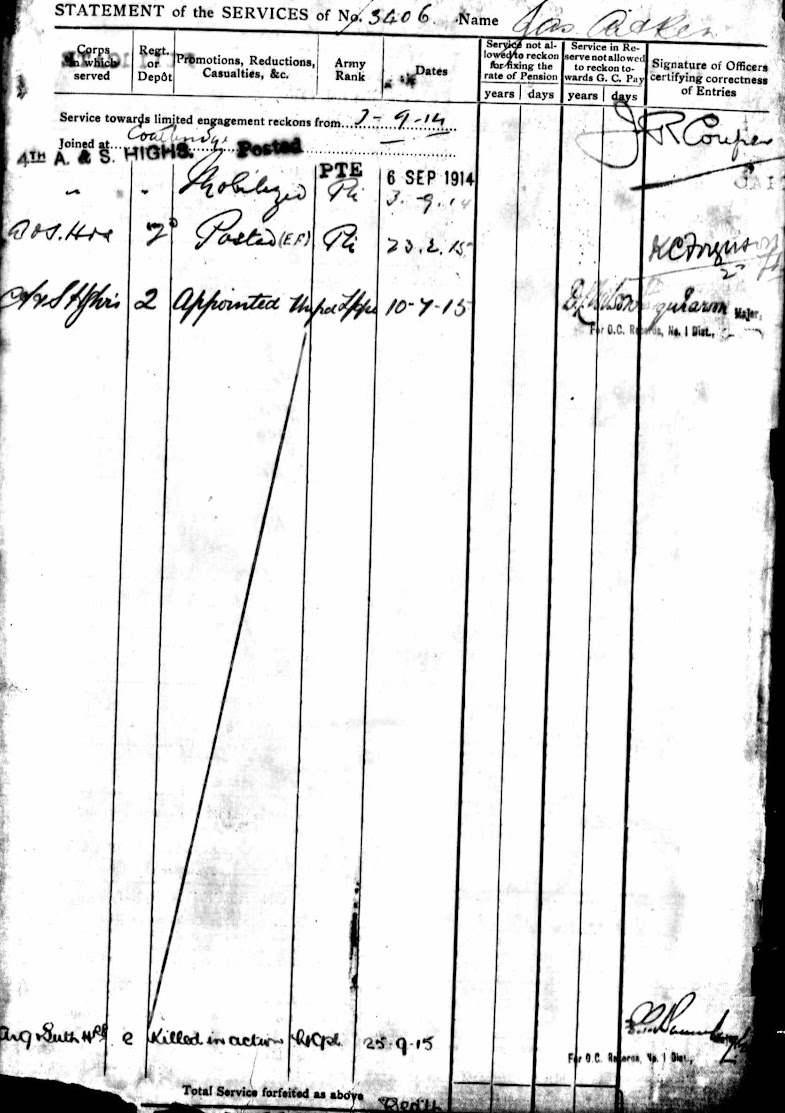 STATEMENT of the SERVICES of No. 3406 Name Jas Aitken
Corps in which served
Regt. or Depôt
Promotions, Reductions, Casualties, &c.
Army Rank
Dates
Service not allowed to reckon for fixing the rate of Pension
years days
Service in Reserve not allowed to reckon towards G. C. Pay
years days
Signature of Officers certifying correctness of Entries
Service towards limited engagement reckons from 3-9-14
Joined at Coatbridge
J R Couper
4TH A. & S. HIGHS. Posted PTE 6 SEP 1914
" " Mobilized Pte 3.9.14
A & S. Hrs 2 Posted (E.F) Pte 23.2.15 K C Ferguson
A & S Hghrs 2 Appointed Unpd L/Cpl 10-7-15 Major,
For O.C. Records, No. 1 Dist.,
Arg & Suth Hrs 2 Killed in action L/Cpl. 25-9-15
For O.C. Records, No. 1 Dist.,
Total Service forfeited as above